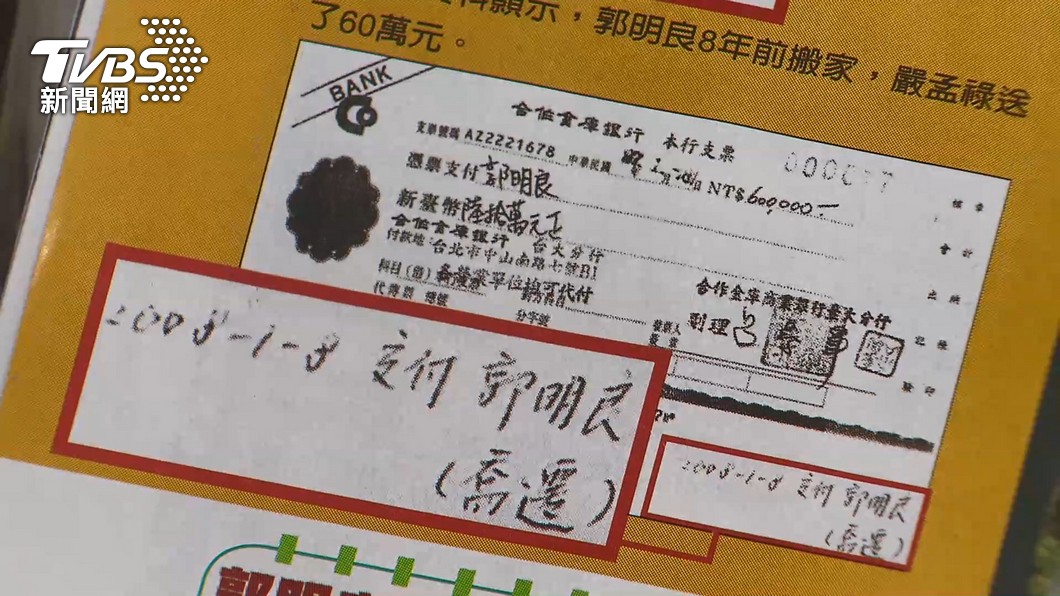 TVBS
新聞網
料顯示，郭明良8年前搬家，嚴孟祿送
了60萬元。
BANK
合作金庫銀行 本行支票
支票號碼 AZ2221678 中華民國
NT$600,000.—
憑票支付 郭明良
新臺幣陸拾萬元正
合作金庫銀行 台大分行
付款地：台北市中山南路七號B1
科目(借)
單位均可代付
合作金庫商業銀行臺大分行
副理
2008-1-8 交付 郭明良
(喬遷)
2008-1-8 交付 郭明良
(喬遷)
郭明